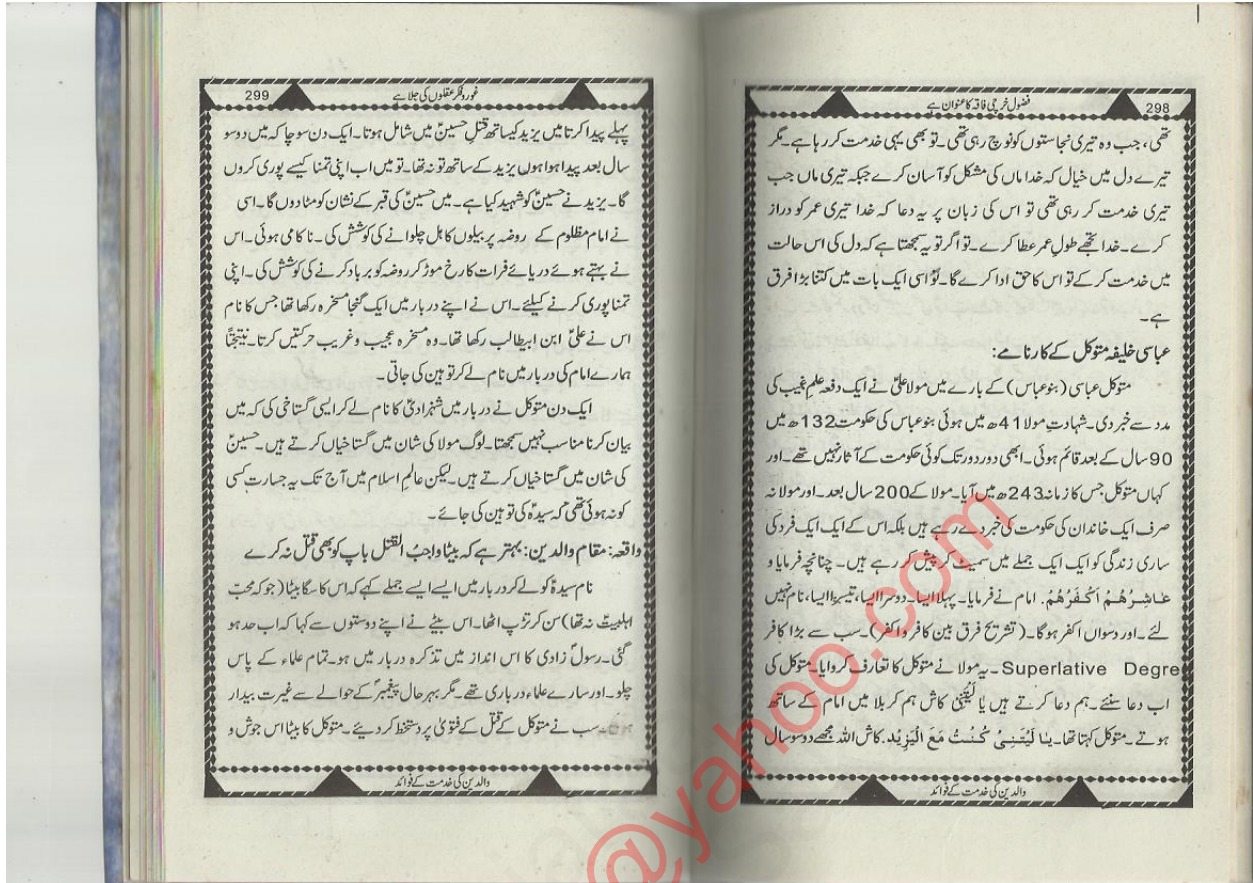 298
فضول خرچی فاقہ کا عنوان ہے
تھی، جب وہ تیری نجاستوں کو نوچ رہی تھی۔ تو بھی یہی خدمت کر رہا ہے۔ مگر
تیرے دل میں خیال کہ خدا ماں کی مشکل کو آسان کرے جبکہ تیری ماں جب
تیری خدمت کر رہی تھی تو اس کی زبان پر یہ دعا کہ خدا تیری عمر کو دراز
کرے۔ خدا تجھے طولِ عمر عطا کرے۔ تو اگر تو یہ سمجھتا ہے کہ دل کی اس حالت
میں خدمت کر کے تو اس کا حق ادا کرے گا۔ تو اسی ایک بات میں کتنا بڑا فرق
ہے۔
عباسی خلیفہ متوکل کے کارنامے:
متوکل عباسی (بنو عباس) کے بارے میں مولا علیؑ نے ایک دفعہ علمِ غیب کی
مدد سے خبر دی۔ شہادتِ مولا 41ھ میں ہوئی بنو عباس کی حکومت 132ھ میں
90 سال کے بعد قائم ہوئی۔ ابھی دور دور تک کوئی حکومت کے آثار نہیں تھے۔ اور
کہاں متوکل جس کا زمانہ 243ھ میں آیا۔ مولا کے 200 سال بعد۔ اور مولا نہ
صرف ایک خاندان کی حکومت کی خبر دے رہے ہیں بلکہ اس کے ایک ایک فرد کی
ساری زندگی کو ایک ایک جملے میں سمیٹ کر پیش کر رہے ہیں۔ چنانچہ فرمایا و
عَاشِرُهُمْ اَكْفَرُهُمْ. امام نے فرمایا۔ پہلا ایسا۔ دوسرا ایسا، تیسرا ایسا، نام نہیں
لئے۔ اور دسواں اکفر ہوگا۔ (تشریح فرق بین کافر و اکفر)۔ سب سے بڑا کافر
Superlative Degre۔ یہ مولا نے متوکل کا تعارف کروایا۔ متوکل کی
اب دعا سنئے۔ ہم دعا کرتے ہیں یَا لَیْتَنِیْ کاش ہم کربلا میں امام کے ساتھ
ہوتے۔ متوکل کہتا تھا۔ يٰا لَيْتَنِىْ كُنْتُ مَعَ الْيَزِيْد. کاش اللہ مجھے دو سو سال
والدین کی خدمت کے فوائد
299
غور و فکر عقلوں کی جلا ہے
پہلے پیدا کرتا میں یزید کیساتھ قتلِ حسینؑ میں شامل ہوتا۔ ایک دن سوچا کہ میں دو سو
سال بعد پیدا ہوا ہوں یزید کے ساتھ تو نہ تھا۔ تو میں اب اپنی تمنا کیسے پوری کروں
گا۔ یزید نے حسینؑ کو شہید کیا ہے۔ میں حسینؑ کی قبر کے نشان کو مٹا دوں گا۔ اسی
نے امام مظلوم کے روضہ پر بیلوں کا ہل چلوانے کی کوشش کی۔ ناکامی ہوئی۔ اس
نے بہتے ہوئے دریائے فرات کا رخ موڑ کر روضہ کو برباد کرنے کی کوشش کی۔ اپنی
تمنا پوری کرنے کیلئے۔ اس نے اپنے دربار میں ایک گنجا مسخرہ رکھا تھا جس کا نام
اس نے علیؑ ابن ابیطالب رکھا تھا۔ وہ مسخرہ عجیب و غریب حرکتیں کرتا۔ نتیجتاً
ہمارے امام کی دربار میں نام لے کر توہین کی جاتی۔
ایک دن متوکل نے دربار میں شہزادیؑ کا نام لے کر ایسی گستاخی کی کہ میں
بیان کرنا مناسب نہیں سمجھتا۔ لوگ مولا کی شان میں گستاخیاں کرتے ہیں۔ حسینؑ
کی شان میں گستاخیاں کرتے ہیں۔ لیکن عالمِ اسلام میں آج تک یہ جسارت کسی
کو نہ ہوئی تھی کہ سیدہؑ کی توہین کی جائے۔
واقعہ: مقام والدین: بہتر ہے کہ بیٹا واجبُ القتل باپ کو بھی قتل نہ کرے
نام سیدہؑ کو لے کر دربار میں ایسے ایسے جملے کہے کہ اس کا سگا بیٹا (جو کہ محبّ
اہلبیتؑ نہ تھا) سن کر تڑپ اٹھا۔ اس بیٹے نے اپنے دوستوں سے کہا کہ اب حد ہو
گئی۔ رسولؐ زادی کا اس انداز میں تذکرہ دربار میں ہو۔ تمام علماء کے پاس
چلو۔ اور سارے علماء درباری تھے۔ مگر بہر حال پیغمبرؐ کے حوالے سے غیرت بیدار
سب نے متوکل کے قتل کے فتویٰ پر دستخط کر دیئے۔ متوکل کا بیٹا اس جوش و
والدین کی خدمت کے فوائد
@yahoo.com